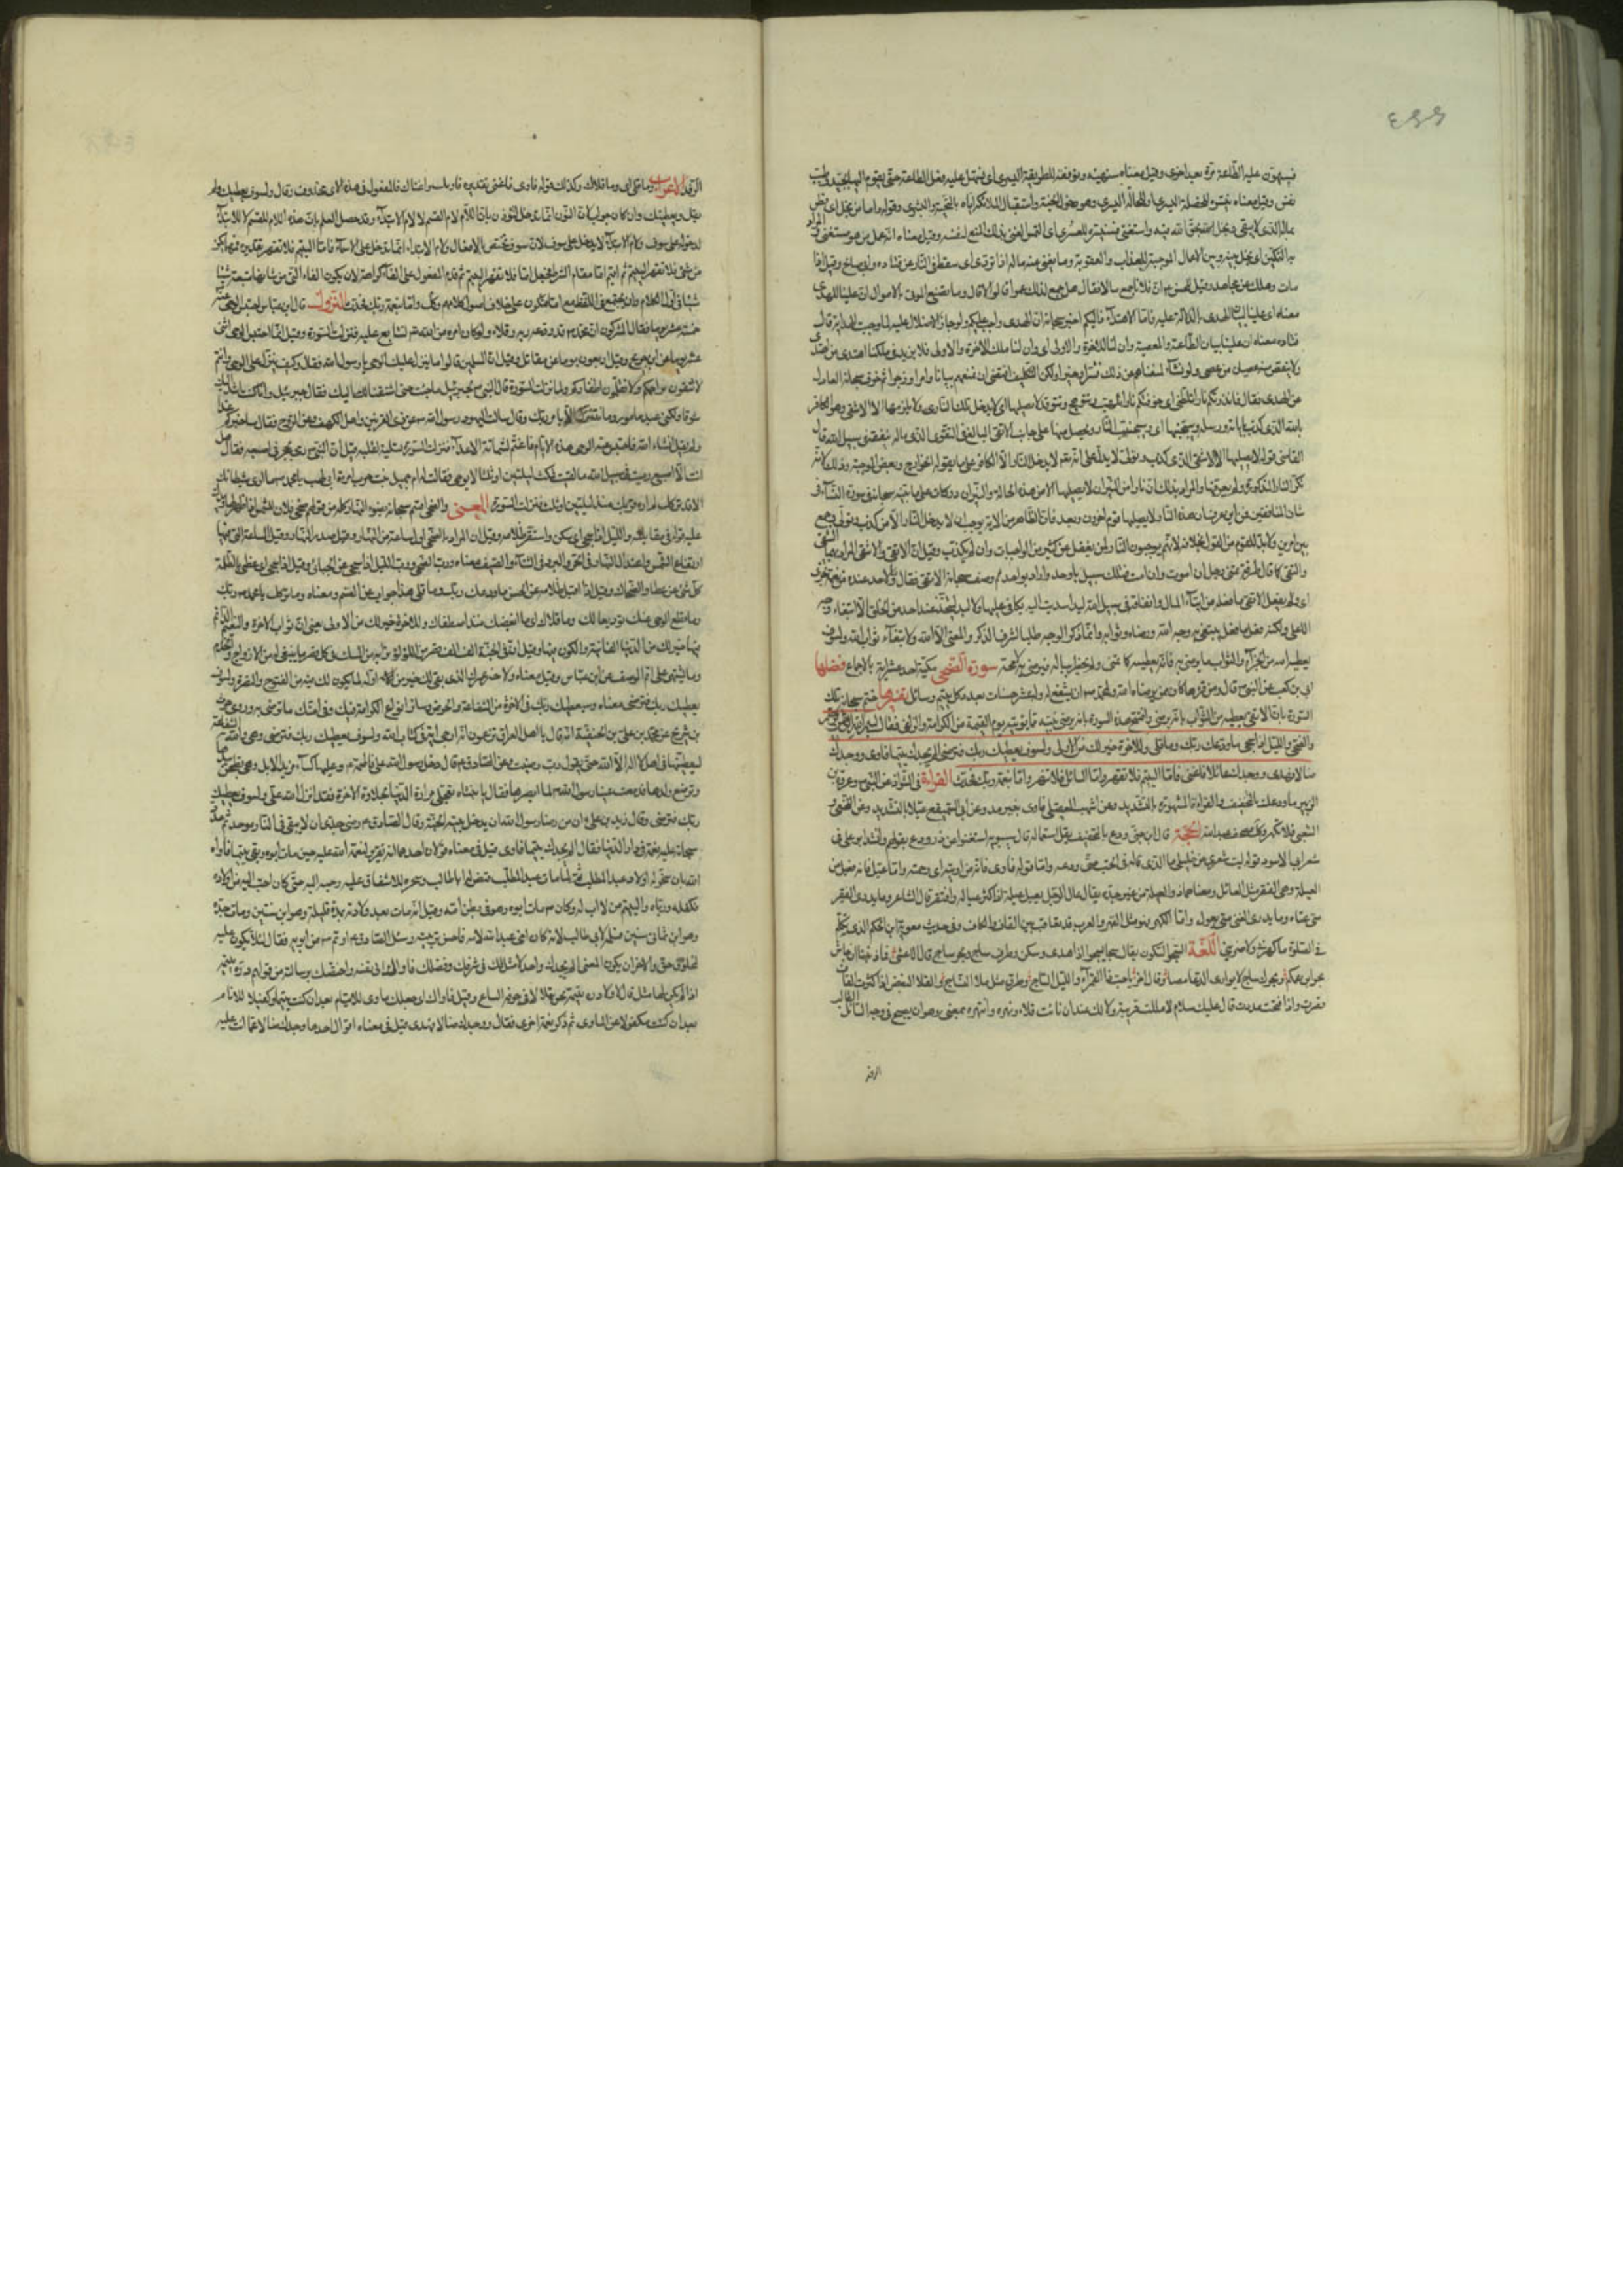 فيسهون عليه الطاعة مرة بعد اخرى وقيل معناه سنهيئه ونوفقه للطريقة اليسرى اى نسهل عليه فعل الطاعة حتى يقوم اليها بجد وطيب
نفس وقيل معناه نيسره للخصلة اليسرى والحالة اليسرى وهو دخول الجنة واستقبال الملائكة اياه بالتحية والبشرى وقوله واما من بخل اى ضن
بماله الذى لا يبقى له وبخل بحق الله فيه واستغنى فسنيسره للعسرى اى التمس الغنى بذلك المنع لنفسه وقيل معناه انه عمل من هو مستغن
به التمكين اى نخلى بينه وبين الاعمال الموجبة للعذاب والعقوبة وما يغنى عنه ماله اذا تردى اى سقط فى النار عن قتادة وابى صالح وقيل اذا
مات وهلك عن مجاهد وقيل للحسن ان فلانا جمع مالا فقال هل جمع لذلك عمرا قالوا لا قال وما تصنع الموتى بالاموال ان علينا للهدى
معناه ان علينا لبيان الهدى بالدلالة عليه فاما الاهتداء فاليكم اخبر سبحانه ان الهدى واجب عليه ولو جاز الاضلال عليه لما وجب الهداية قال
قتادة معناه ان علينا بيان الطاعة والمعصية وان لنا للاخرة والاولى اى وان لنا ملك الاخرة والاولى فلا يزيد فى ملكنا اهتداء من اهتدى
ولا ينقص منه عصيان من عصى ولو نشاء لمنعناهم عن ذلك قسرا وجبرا ولكن التكليف اقتضى ان نمنعهم بيانا وامرا وزجرا ثم خوف سبحانه العادل
عن الهدى فقال فانذرتكم نارا تلظى اى خوفتكم نارا تتلهب وتتوهج وتتوقد لا يصليها اى لا يدخل تلك النار ولا يلزمها الا الاشقى وهو الكافر
بالله الذى كذب بايات الله ورسله وسيجنبها اى سيجنب النار ويجعل منها على جانب الاتقى البالغ فى التقوى الذى ماله ينفقه فى سبيل الله قال
القاضى قوله لا يصليها الا الاشقى الذى كذب وتولى لا يدل على انه تعالى لا يدخل النار الا الكافر على ما يقوله الخوارج وبعض المرجئة وذلك لانه
نكر النار المذكورة ولم يعرفها والمراد بذلك ان نارا من النيران لا يصليها الا من هذه حاله والنيران دركات على ما بينه سبحانه فى سورة النساء فى
شأن المنافقين فمن اين عرف ان هذه النار لا يصليها قوم اخرون وبعد فان الظاهر من الاية يوجب ان لا يدخل النار الا من كذب وتولى وجمع
بين الامرين ولا بد للقوم من القول بخلافه لانهم يوجبون النار لمن يفعل كثيرا من الواجبات وان لم يكذب وقيل ان الاتقى والاشقى المراد بهما
والتقى كما قال طرفة تمنى رجال ان اموت وان امت فتلك سبيل لست فيها باوحد واراد بواحد ثم وصف سبحانه الاتقى فقال وما لاحد عنده من نعمة تجزى
اى ولم يفعل الاتقى ما فعله من ايتاء المال وانفاقه فى سبيل الله ليد اسديت اليه يكافى عليها ولا ليد يتخذها عند احد من الخلق الا ابتغاء وجه
الاعلى ولكنه فعل ما فعل يبتغى به وجه الله ورضاه وثوابه وانما ذكر الوجه طلبا لشرف الذكر والمعنى الا الله ولابتغاء ثواب الله ولسوف
يعطيه الله من الجزاء والثواب ما يرضى به فانه يعطيه كل ما تمنى ولم يخطر بباله فيرضى به لا محالة سورة الضحى مكية احد عشر اية بالاجماع فضلها
ابى بن كعب عن النبى قال ومن قرأها كان ممن يرضاه الله ولمحمد ان يشفع له وله عشر حسنات بعدد كل يتيم وسائل تفسيرها ختم سبحانه تلك
السورة بان الاتقى يعطيه من الثواب ما به يرضى وافتتح هذه السورة بانه يرضى نبيه بما يؤتيه يوم القيمة من الكرامة والزلفى فقال بسم الله الرحمن الرحيم
والضحى والليل اذا سجى ما ودعك ربك وما قلى وللاخرة خير لك من الاولى ولسوف يعطيك ربك فترضى الم يجدك يتيما فاوى ووجدك
ضالا فهدى ووجدك عائلا فاغنى فاما اليتيم فلا تقهر واما السائل فلا تنهر واما بنعمة ربك فحدث القراءة فى الشواذ عن النبى وعروة بن
الزبير ما ودعك بالتخفيف والقراءة المشهورة بالتشديد وعن اشهب العقيلى فاوى بغير مد وعن ابن السميفع عيلا بالتشديد وعن النخعى و
الشعبى فلا تكهر وكذلك هو فى مصحف عبد الله الحجة قال ابن جنى ودع بالتخفيف يقل استعماله قال سيبويه استغنوا عن وذر وودع بقولهم ترك وانشد ابو على فى
شعر ابى الاسود قوله ليت شعرى عن خليلى ما الذى غاله فى الحب حتى ودعه واما قوله فاوى فانه من اويته اى رحمته واما عيلا فانه فيعل من
العيلة وهى الفقر مثل العائل ومعناهما ذو العيلة من غير جدة يقال عال الرجل يعيل عيلة اذا كثر عياله وافتقر قال الشاعر وما يدرى الفقير
متى غناه وما يدرى الغنى متى يعيل واما الكهر فهو مثل القهر والعرب قد تعاقب بين القاف والكاف وفى حديث معوية ابن الحكم الذى تكلم
فى الصلوة ما كهرنى ولا ضربنى اللغة السجو السكون يقال سجا يسجو اذا هدى وسكن وطرف ساج وبحر ساج قال الاعشى فما ذنبنا ان جاش
بحر ابن عمكم وبحرك ساج لا يوارى الدعامصا وقال اخر يا حبذا القمراء والليل الساج وطرق مثل ملاء النساج والقلا البغض اذا كسرت القاف
قصرت واذا فتحت مددت قال عليك سلام لا مللت قريبة ومالك عندى ان نايت قلاء ونهره وانتهره بمعنى وهو ان يصيح فى وجه السائل
الرفد الاعراب وما قلى اى وما قلاك وكذلك قوله فاوى فاغنى تقديره فاواك فاغناك فالمفعول فى هذه الاى محذوف وقال ولسوف يعطيك ولم
يقل ويعطينك وان كان جواب القسم لان النون انما تدخل لتؤذن بان اللام لام القسم لا لام الابتداء وقد حصل العلم بان هذه اللام للقسم لا للابتداء
لدخولها على سوف ولام الابتداء لا يدخل على سوف لان سوف تختص بالافعال ولام الابتداء انما تدخل على الاسماء فاما اليتيم فلا تقهر تقديره مهما يكن
من شىء فلا تقهر اليتيم ثم اقيم اما مقام الشرط فحصل اما فلا تقهر اليتيم ثم قدم المفعول على الفاء كراهة لان يكون الفاء التى من شأنها ان تكون متبعة شيئا
شيئا فى اول الكلام وان يجتمع فى اللفظ مع اما فيكون على خلاف اصول كلامهم وكذلك واما بنعمة ربك فحدث النزول قال ابن عباس احتبس الوحى عنه
خمسة عشر يوما فقال المشركون ان محمدا قد ودعه ربه وقلاه ولو كان امره من الله تعالى لتتابع عليه فنزلت السورة وقيل انما احتبس الوحى اثنى
عشر يوما عن ابن جريج وقيل اربعون يوما عن مقاتل وقيل ان المسلمين قالوا ما ينزل عليك الوحى يا رسول الله فقال وكيف ينزل على الوحى وانتم
لا تنقون براجمكم ولا تقلمون اظفاركم ولما نزلت السورة قال النبى لجبرئيل ما جئت حتى اشتقت اليك فقال جبرئيل وانا كنت اشد اليك
شوقا ولكنى عبد مأمور وما نتنزل الا بامر ربك وقيل سألت اليهود رسول الله عن ذى القرنين واصحاب الكهف وعن الروح فقال ساخبركم غدا
ولم يقل ان شاء الله فاحتبس عنه الوحى هذه الايام فاغتم لشماتة الاعداء فنزلت السورة تسلية لقلبه وقيل ان النبى رمى بحجر فى اصبعه فقال هل
انت الا اصبع دميت وفى سبيل الله ما لقيت فمكث ليلتين او ثلثا لا يوحى فقالت له ام جميل بنت حرب امرأة ابى لهب يا محمد ما ارى شيطانك
الا قد تركك لم اره قربك منذ ليلتين او ثلث فنزلت السورة المعنى والضحى اقسم سبحانه بضوء النهار كله من قولهم ضحى فلان للشمس اذا ظهر لها
عليه قوله فى مقابلته والليل اذا سجى اى سكن واستقر ظلامه وقيل ان المراد بالضحى اول ساعة من النهار وقيل صدر النهار وقيل الساعة التى فيها
ارتفاع الشمس واعتدال النهار فى الحر والبرد فى الشتاء والصيف وقيل معناه ورب الضحى ورب الليل اذا سجى عن الجبائى وقيل اذا سجى اى غطى بالظلمة
كل شىء عن عطا والضحاك وقيل اذا اقبل ظلامه عن الحسن ما ودعك ربك وما قلى هذا جواب القسم ومعناه وما تركك يا محمد ربك
وما قطع الوحى عنك توديعا لك وما قلاك اى ما ابغضك منذ اصطفاك وللاخرة خير لك من الاولى يعنى ان ثواب الاخرة والنعيم الدائم
فيها خير لك من الدنيا الفانية والكون فيها وقيل ان له فى الجنة الف الف قصر من اللؤلؤ ترابه من المسك فى كل قصر ما ينبغى له من الازواج والخدم
وما يشتهى على اتم الوصف عن ابن عباس وقيل معناه ولاخر عمرك الذى بقى لك خير من اوله لما يكون لك فيه من الفتوح والنصرة ولسوف
يعطيك ربك فترضى معناه وسيعطيك ربك فى الاخرة من الشفاعة والحوض وسائر انواع الكرامة فيك وفى امتك ما ترضى به وروى حرث
بن شريح عن محمد بن على بن الحنفية انه قال يا اهل العراق تزعمون ان ارجى اية فى كتاب الله ولسوف يعطيك ربك فترضى وهى والله الشفاعة
ليعطينها فى اهل لا اله الا الله حتى يقول رب رضيت وعن الصادق قال دخل رسول الله على فاطمة وعليها كساء من ثلة الابل وهى تطحن بيدها
وترضع ولدها فدمعت عينا رسول الله لما ابصرها فقال يا بنتاه تعجلى مرارة الدنيا بحلاوة الاخرة فقد انزل الله على ولسوف يعطيك
ربك فترضى وقال زيد بن على ان من رضا رسول الله ان يدخل اهل بيته الجنة وقال الصادق رضى جدى ان لا يبقى فى النار موحد ثم عد
سبحانه عليه نعمه فى دار الدنيا فقال الم يجدك يتيما فاوى قيل فى معناه قولان احدهما انه تقرير لنعمة الله عليه حين مات ابوه وبقى يتيما فاواه
الله بان سخر له اولا عبد المطلب ثم لما مات عبد المطلب قيض له ابا طالب وسخره للاشفاق عليه وحببه اليه حتى كان احب اليه من اولاده
فكفله ورباه واليتيم من لا اب له وكان مات ابوه وهو فى بطن امه وقيل انه مات بعد ولادته بمدة قليلة وهو ابن سنتين ومات جده
وهو ابن ثمانى سنين فسلمه الى ابى طالب لانه كان اخى عبد الله لامه فاحسن تربيته وسئل الصادق لم اوتم من ابويه فقال لئلا يكون عليه
لمخلوق حق والاخر ان يكون المعنى الم يجدك واحدا لا مثل لك فى شرفك وفضلك فاواك الى نفسه واختصك برسالته من قولهم درة يتيمة
اذا لم يكن لها مثل قال لا ولا درة يتيمة بحر تلألأ فى جؤنة البياع وقيل فاواك اى جعلك مأوى للايتام بعد ان كنت يتيما وكفيلا للانام
بعد ان كنت مكفولا عن الماوردى ثم ذكر نعمة اخرى فقال ووجدك ضالا فهدى قيل فى معناه اقوال احدها وجدك ضالا عما انت عليه